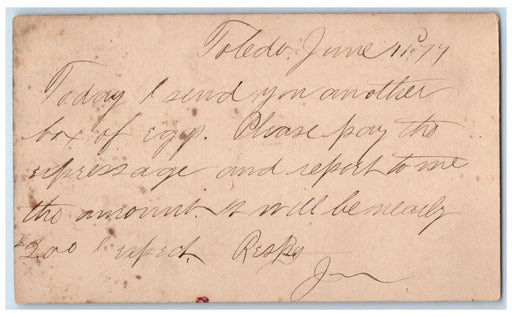 Toledo. June 11, 77
Today I send you another
box of eggs. Please pay the
expressage and report to me
the amount. It will be nearly
$2.00 I expect. Resply